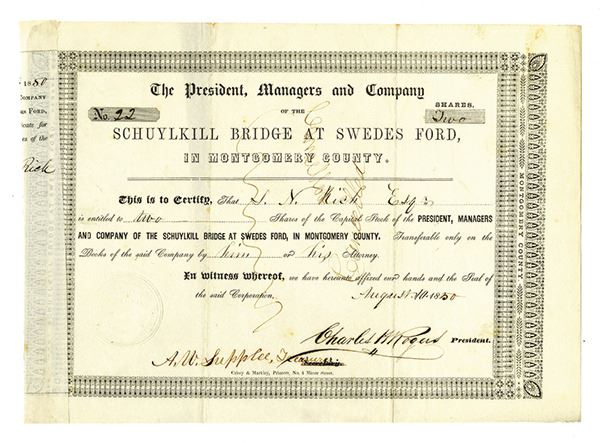 1850
COMPANY
FORD,
for
of the
Rich
The President, Managers and Company
OF THE
No. 22
SHARES.
Two
SCHUYLKILL BRIDGE AT SWEDES FORD,
IN MONTGOMERY COUNTY.
This is to Certify, That S. N. Rich Esqr
is entitled to two Shares of the Capital Stock of the PRESIDENT, MANAGERS
AND COMPANY OF THE SCHUYLKILL BRIDGE AT SWEDES FORD, IN MONTGOMERY COUNTY. Transferable only on the
Books of the said Company by him or his Attorney.
In witness whereof, we have hereunto affixed our hands and the Seal of
the said Corporation, August 1850
Charles President.
A. W. Supplee, Treasurer.
Crissy & Markley, Printers, No. 4 Minor Street.
MONTGOMERY COUNTY